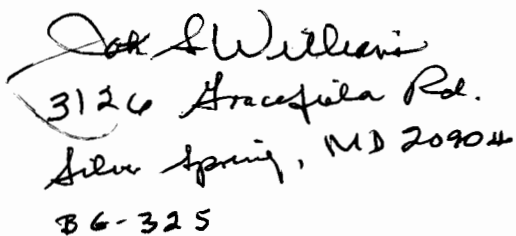 Jack S Williams
3126 Gracefield Rd.
Silver Spring, MD 20904
BG-325